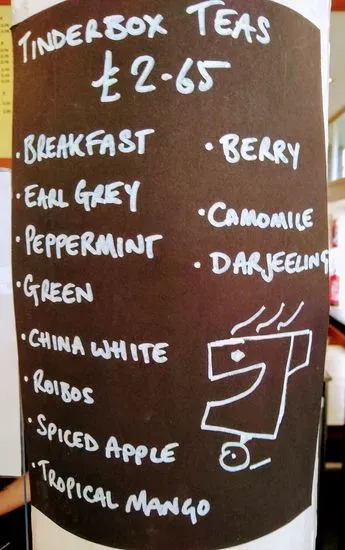 TINDERBOX TEAS
£2.65
• BREAKFAST
• EARL GREY
• PEPPERMINT
• GREEN
• CHINA WHITE
• ROIBOS
• SPICED APPLE
• TROPICAL MANGO
• BERRY
• CAMOMILE
• DARJEELING